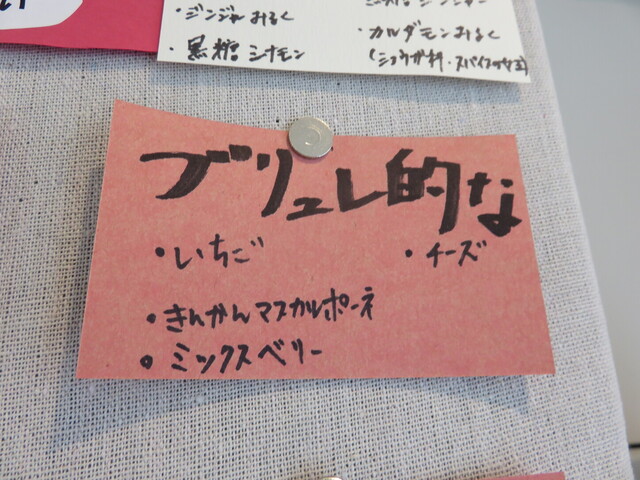 ・ジンジャーみるく
・カルダモンみるく
・黒糖シナモン
(ショウガ科・スパイスの女王)
ブリュレ的な
・いちご ・チーズ
・きんかんマスカルポーネ
・ミックスベリー